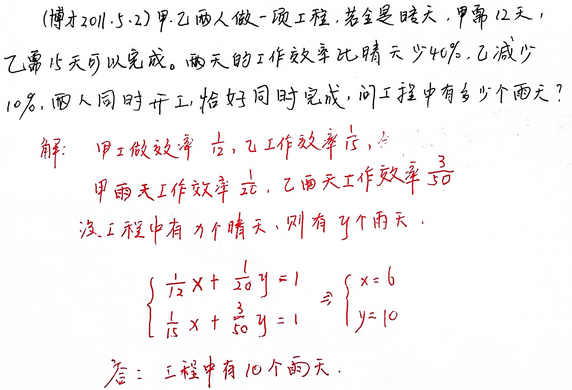 (博才2011.5.2) 甲.乙两人做一项工程.若全是晴天,甲需12天,
乙需15天可以完成。雨天的工作效率比晴天少40%.乙减少
10%,两人同时开工,恰好同时完成,问工程中有多少个雨天?
解: 甲工做效率 1/12, 乙工作效率 1/15,
甲雨天工作效率 1/20, 乙雨天工作效率 3/50
设工程中有x个晴天,则有y个雨天.
{ 1/12 x + 1/20 y = 1 ⇒ { x = 6
1/15 x + 3/50 y = 1 y = 10
答: 工程中有10个雨天.